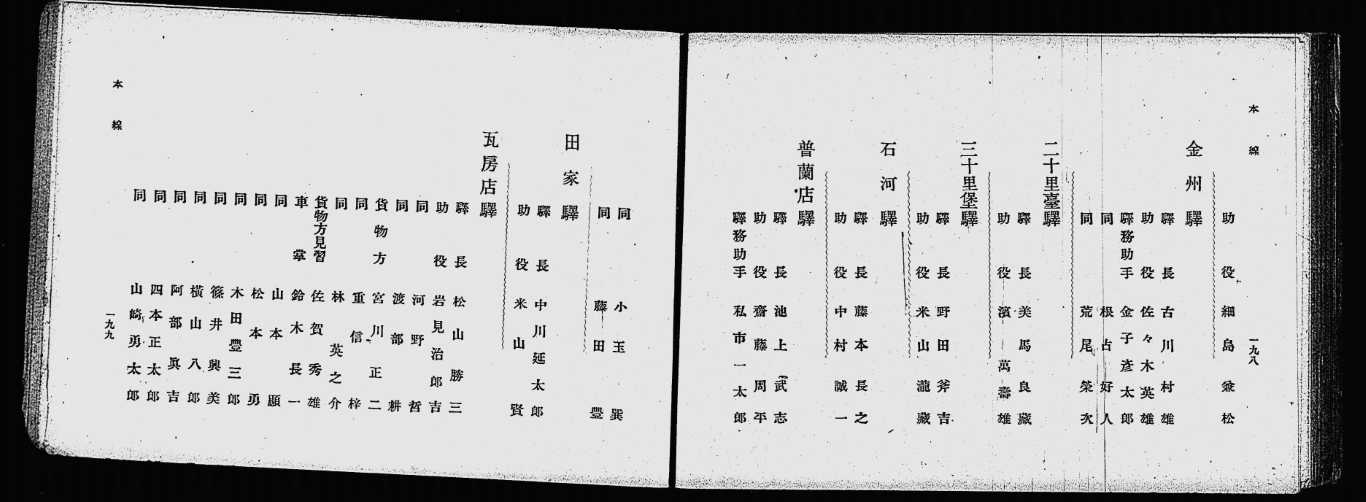 本線
一九八
助役 細島兼松
金州驛
驛長 古川村雄
助役 佐々木英雄
驛務助手 金子彦太郎
同 根占好人
同 荒尾榮次
二十里臺驛
驛長 美馬良藏
助役 濱萬壽雄
三十里堡驛
驛長 野田斧吉
助役 米山瀧藏
石河驛
驛長 藤本長之
助役 中村誠一
普蘭店驛
驛長 池上武志
助役 齋藤周平
驛務助手 私市一太郎
同 小玉巽
同 藤田豐
田家驛
驛長 中川延太郎
助役 米山賢
瓦房店驛
驛長 松山勝三
助役 岩見治郎吉
同 河野哲
同 渡部耕
貨物方 宮川正二
同 重信梓
同 林英之介
貨物方見習 佐賀秀雄
車掌 鈴木長一
同 山本顯
同 松本勇
同 木田豐三郎
同 篠井興美
同 横山八郎
同 阿部眞吉
同 四本正太郎
同 山崎勇太郎
本線
一九九